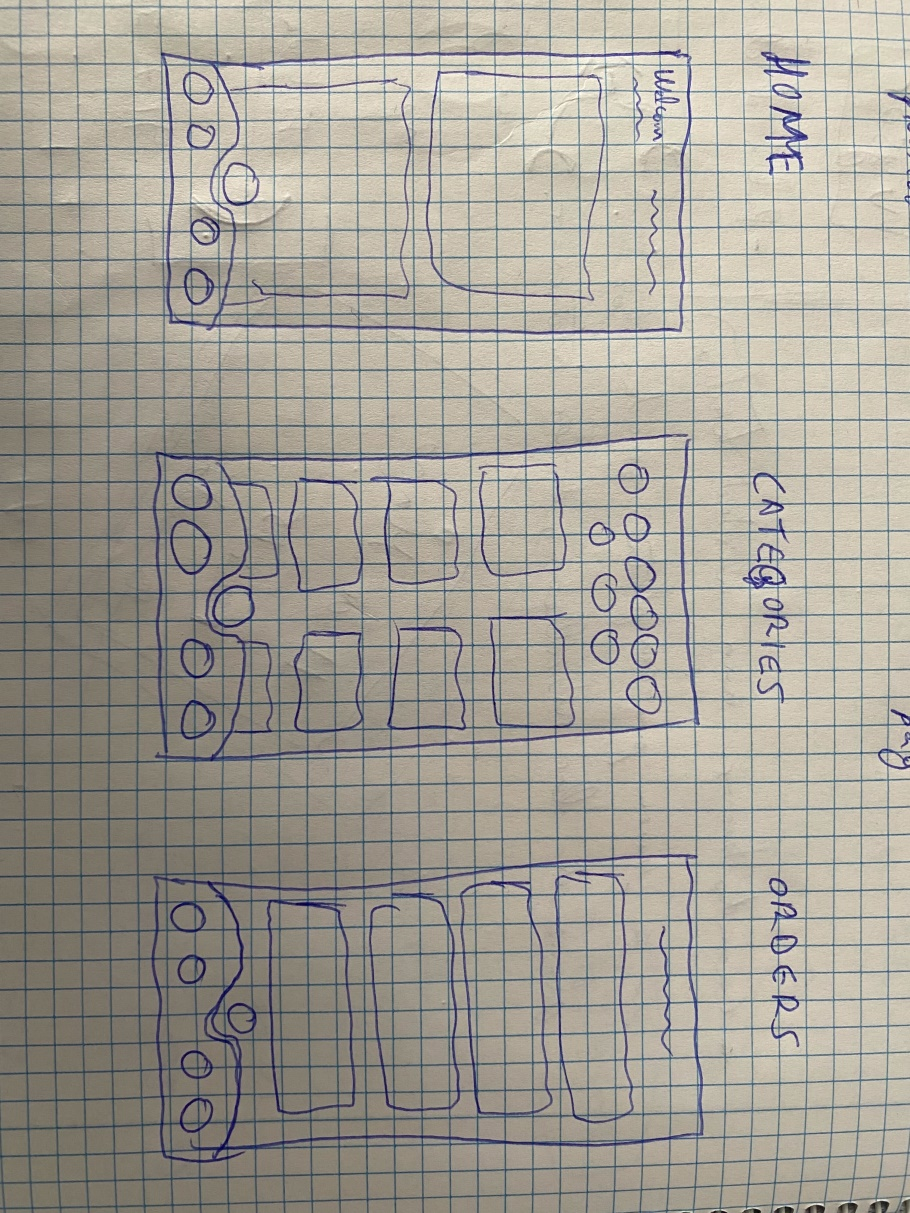 HOME
Welcom
CATEGORIES
ORDERS